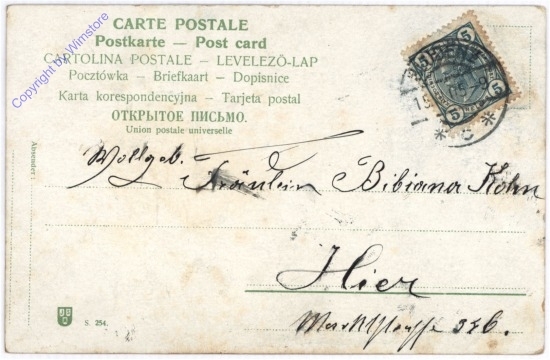 CARTE POSTALE
Postkarte — Post card
CARTOLINA POSTALE – LEVELEZŐ-LAP
Pocztówka – Briefkaart – Dopisnice
Karta korespondencyjna – Tarjeta postal
ОТКРЫТОЕ ПИСЬМО.
Union postale universelle
Wollgeb.
Fräulein Bibiana Kohn
Hier
346.
Absender:
S. 254.
5 5 5
Copyright by Wimstore